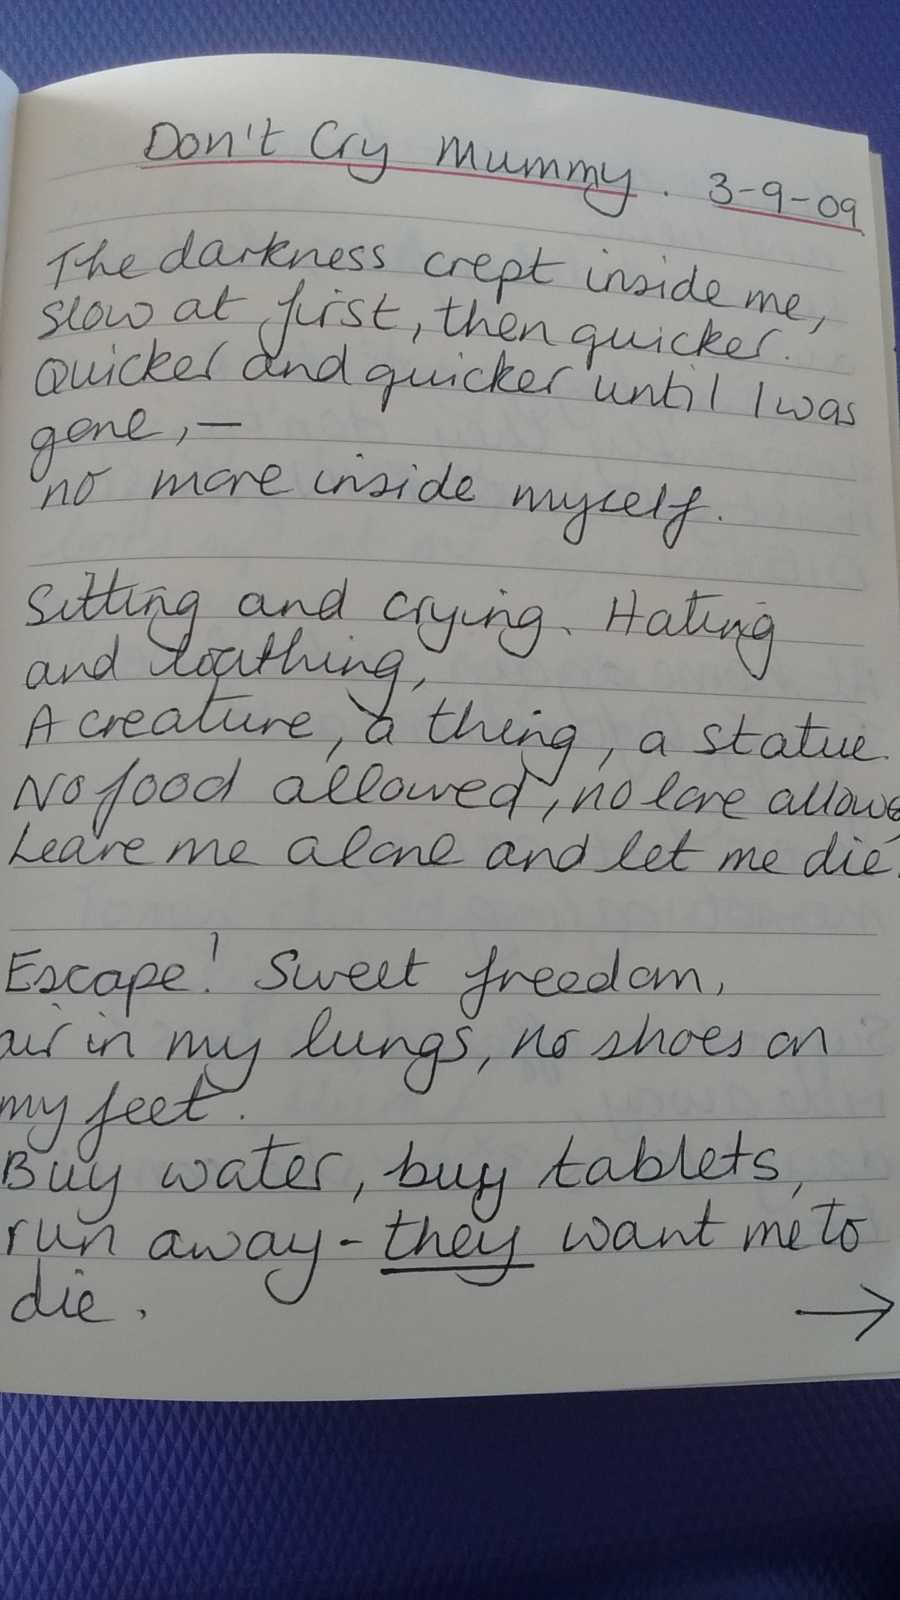 Don't Cry Mummy. 3-9-09
The darkness crept inside me,
slow at first, then quicker.
Quicker and quicker until I was
gone, –
no more inside myself.
Sitting and crying. Hating
and loathing,
A creature, a thing, a statue.
No food allowed, no love allowe
Leave me alone and let me die.
Escape! Sweet freedom,
air in my lungs, no shoes on
my feet.
Buy water, buy tablets,
run away - they want me to
die.
→